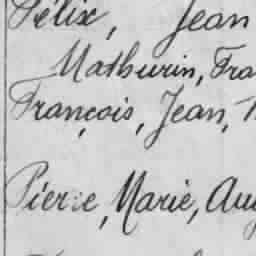 Félix, Jean
Mathurin, Fra
François, Jean,
Pierre, Marie, Aug